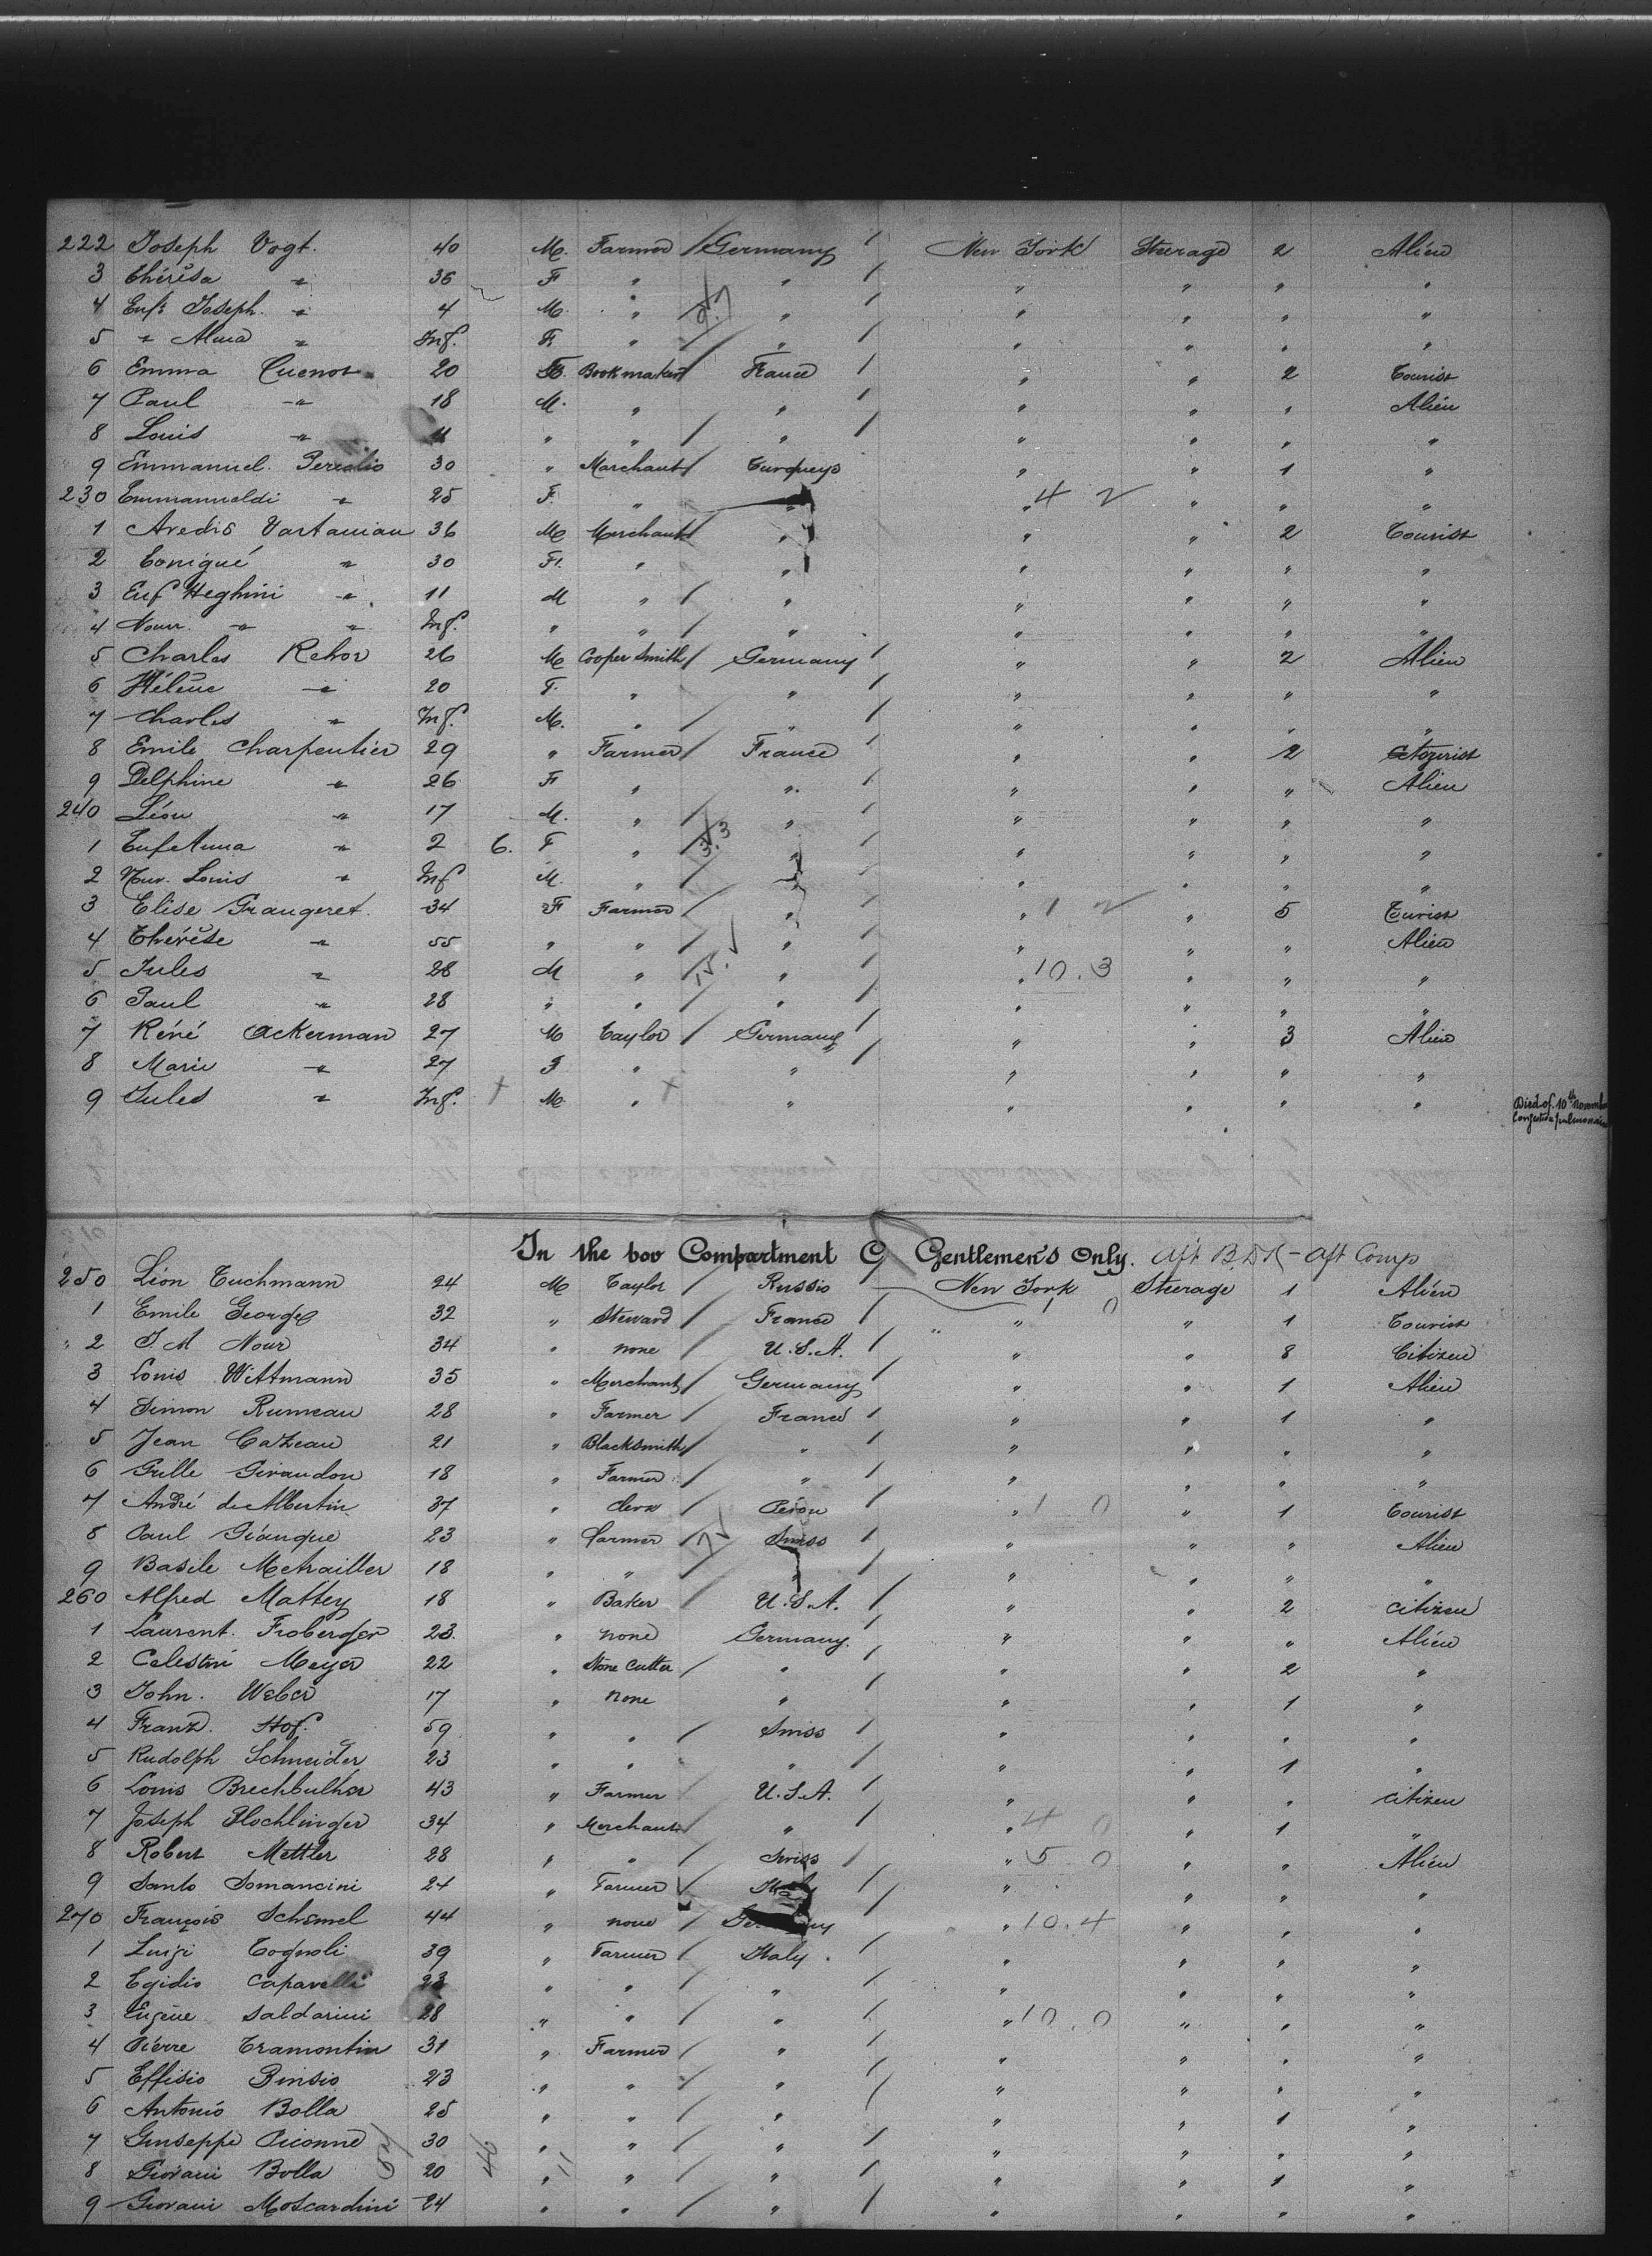 222 Joseph Vogt. 40 M. Farmer Germany New York Steerage 2 Alien
3 Thérèsa " 36 F " " " " " "
4 Enft Joseph. " 4 M. " " " " " "
5 " Alma " Inf. F. " " " " " "
6 Emma Cuenot " 20 F. Bookmaker France " " 2 Tourist
7 Paul " 18 M. " " " " " Alien
8 Louis " " " " " " " "
9 Emmanuel 30 " Marchant Turqueys " " 1 "
230 Emmanueldi " 25 F. " " " 4 2 " " "
1 Avedis Vartanian 36 M Merchant " " " 2 Tourist
2 " 30 F. " " " " " "
3 Enf Heghini " 11 M " " " " " "
4 Nour. " " Inf. " " " " " " "
5 Charles Rehor 26 M Cooper Smith Germany " " 2 Alien
6 Hélène " 20 F. " " " " " "
7 Charles " Inf. M. " " " " " "
8 Emile Charpentier 29 " Farmer France " " 2 Tourist
9 Delphine " 26 F " " " " " Alien
240 Léon " 17 M. " " " " " "
1 Enf Anna " 2 6. F " " " " " "
2 Nour. Louis " Inf M. " " " " " "
3 Elise Grangeret. 34 F Farmer " " 1 2 " 5 Turist
4 Thérèse " 55 " " " " " " Alien
5 Jules " 28 M " " " 10.3 " " "
6 Paul " 28 " " " " " " "
7 Réné Ackerman 27 M Taylor Germany " " 3 Alien
8 Marie " 27 F " " " " " "
9 Jules " Inf. + M " + " " " " " Died of 10th November
Congestion pulmonaire
In the bov Compartment C, Gentlemen's Only. Aft B, DK - Aft Comp
250 Léon Tuchmann 24 M Taylor Russia New York Steerage 1 Alien
1 Emile Georges 32 " Steward France " 1 0 " 1 Tourist
2 J. M Nour 34 " none U.S.A. " " 8 Citizen
3 Louis Wittmann 35 " Merchant Germany " " 1 Alien
4 Simon Rumeau 28 " Farmer France " " 1 "
5 Jean Cazeau 21 " Blacksmith " " " " "
6 Grille Giraudon 18 " Farmer " " " " "
7 André de Albertin 37 " clerk Pérou " 1 0 " 1 Tourist
8 Paul Giauque 23 " farmer Swiss " " " Alien
9 Basile Metrailler 18 " " " " " " "
260 Alfred Mattey 18 " Baker U.S.A. " " 2 citizen
1 Laurent. Froberger 23. " none Germany. " " " Alien
2 Celestin Meyer 22 " Stone Cutter " " " 2 "
3 John. Weber 17 " none " " " 1 "
4 Franz. Hof. 59 " " Swiss " " " "
5 Rudolph Schneider 23 " " " " " 1 "
6 Louis Brechbulher 43 " Farmer U.S.A. " " " citizen
7 Joseph Blochlinger 34 " Merchant " " 4 0 " 1 "
8 Robert Mettler 28 " " Swiss " 5 0 " " Alien
9 Santo Somancini 24 " Farmer Italy " " " "
270 François Schemel 44 " none Germany " 10.4 " " "
1 Luigi Tognoli 39 " Farmer Italy. " " " "
2 Egidio Caparelli 23 " " " " " " "
3 Eugène Saldarini 28 " " " " 10.0 " " "
4 Pierre Tramontin 31 " Farmer " " " " "
5 Effisio Binsio 23 " " " " " " "
6 Antonio Bolla 25 " " " " " 1 "
7 Giuseppe Piconne 30 " " " " " " "
8 Giovani Bolla 20 " " " " " 1 "
9 Giovani Moscardini 24 " " " " " " "